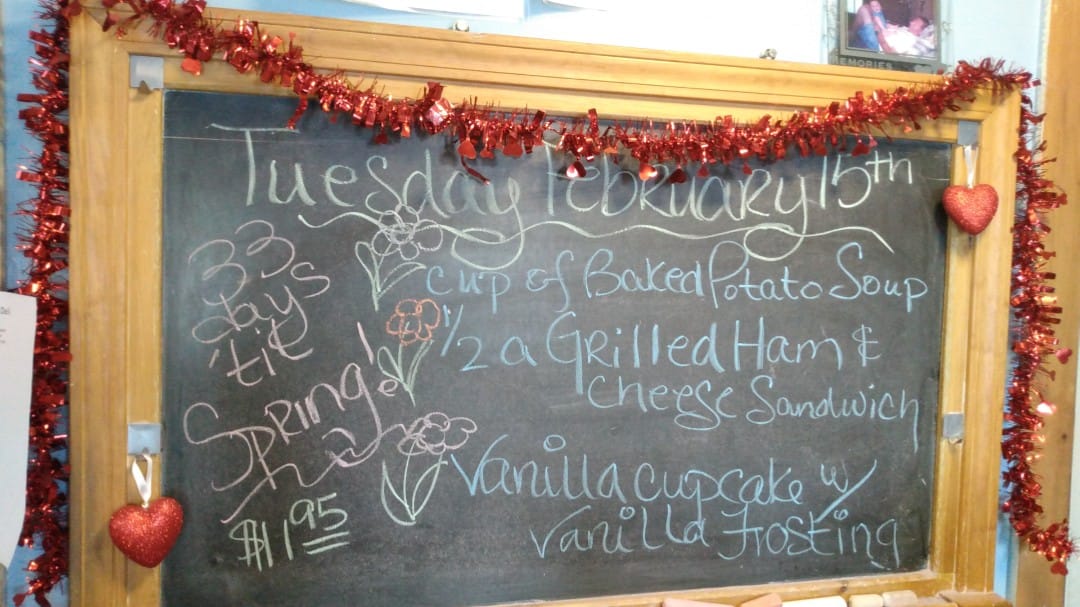 EMORIES
Tuesday February 15th
33
days
'til
Spring!
$11.95
Cup of Baked Potato Soup
1/2 a Grilled Ham &
Cheese Sandwich
Vanilla cupcake w/
Vanilla Frosting